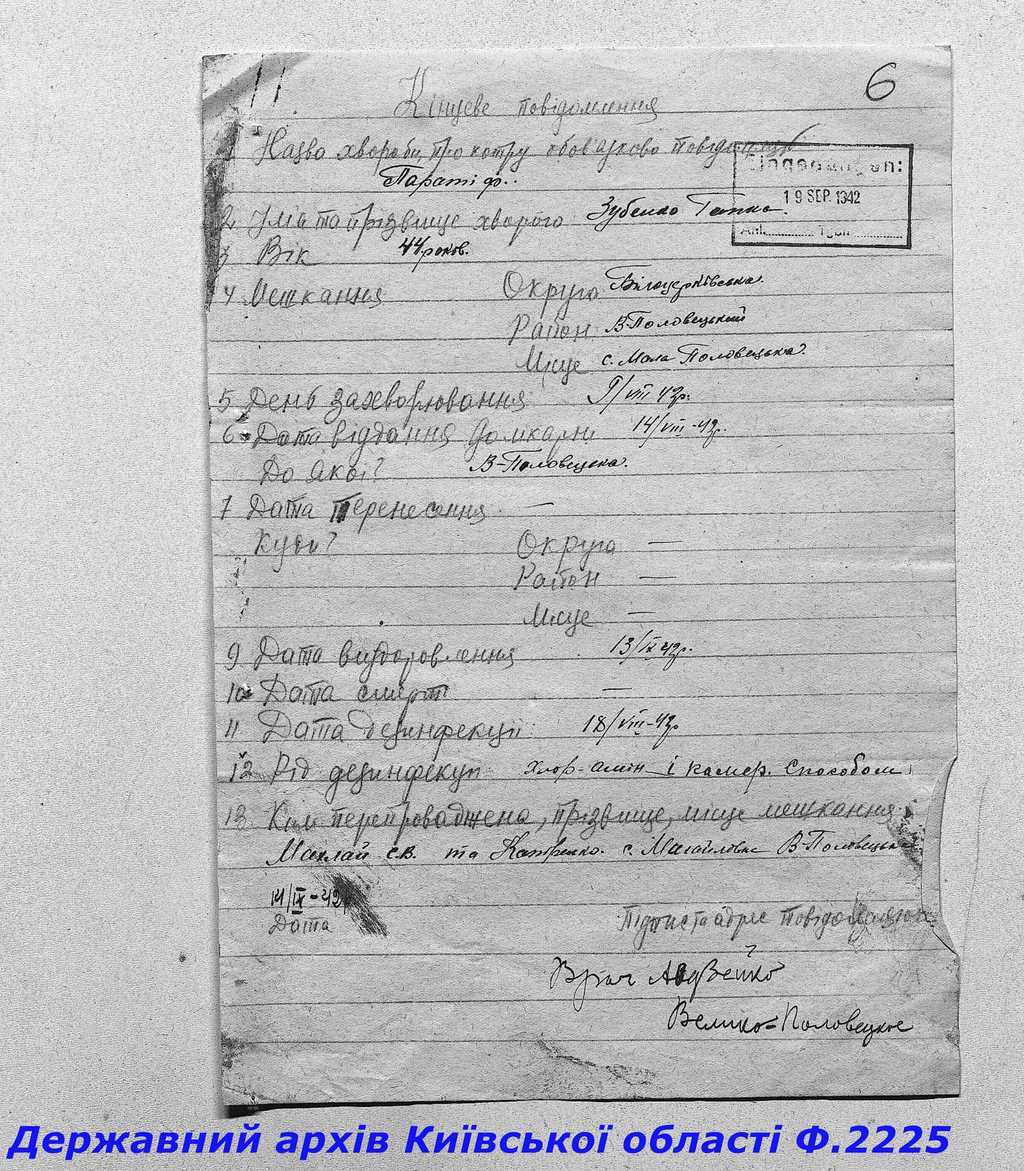 6
Кінцеве повідомлення
1 Назва хвороби, про котру обов'язково повідомляє
Паратіф..
Eingegangen:
19 SEP. 1942
2 Ім'я та прізвище хворого Зубенко
3 Вік 44 роков.
4 Мешкання Округа Білоцерківська.
Район В-Половецький
Місце с. Мала Половецька.
5 День захворювання 9/VIII 42р.
6 Дата віддання до лікарні 14/VIII-42р.
До якої? В-Половецька.
7 Дата перенесення —
Куди? Округа —
Район —
Місце —
9 Дата виздоровлення 13/IX 42р.
10 Дата смерті —
11 Дата дезинфекції 18/VIII-42р.
12 Рід дезинфекції хлор-амін і камер. способом
13 Ким перепроваджена, прізвище, місце мешкання.
Маклай С.В. та с. В-Половецька
14/IX-42
Дата
Підпис та адрес
Врач Авдзейко
Велико-Половецкое
Державний архів Київської області Ф.2225